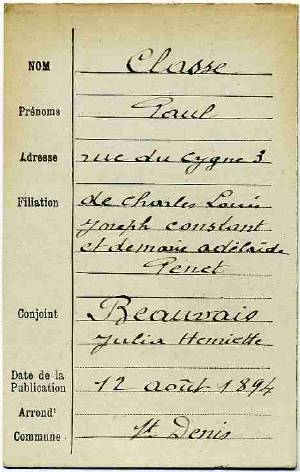 NOM Classe
Prénoms Paul
Adresse rue du Cygne 3
Filiation de Charles Louis
Joseph constant
et de marie adélaïde
Génet
Conjoint Beauvais
Julia Henriette
Date de la
Publication 12 août 1894
Arrondt
Commune St Denis